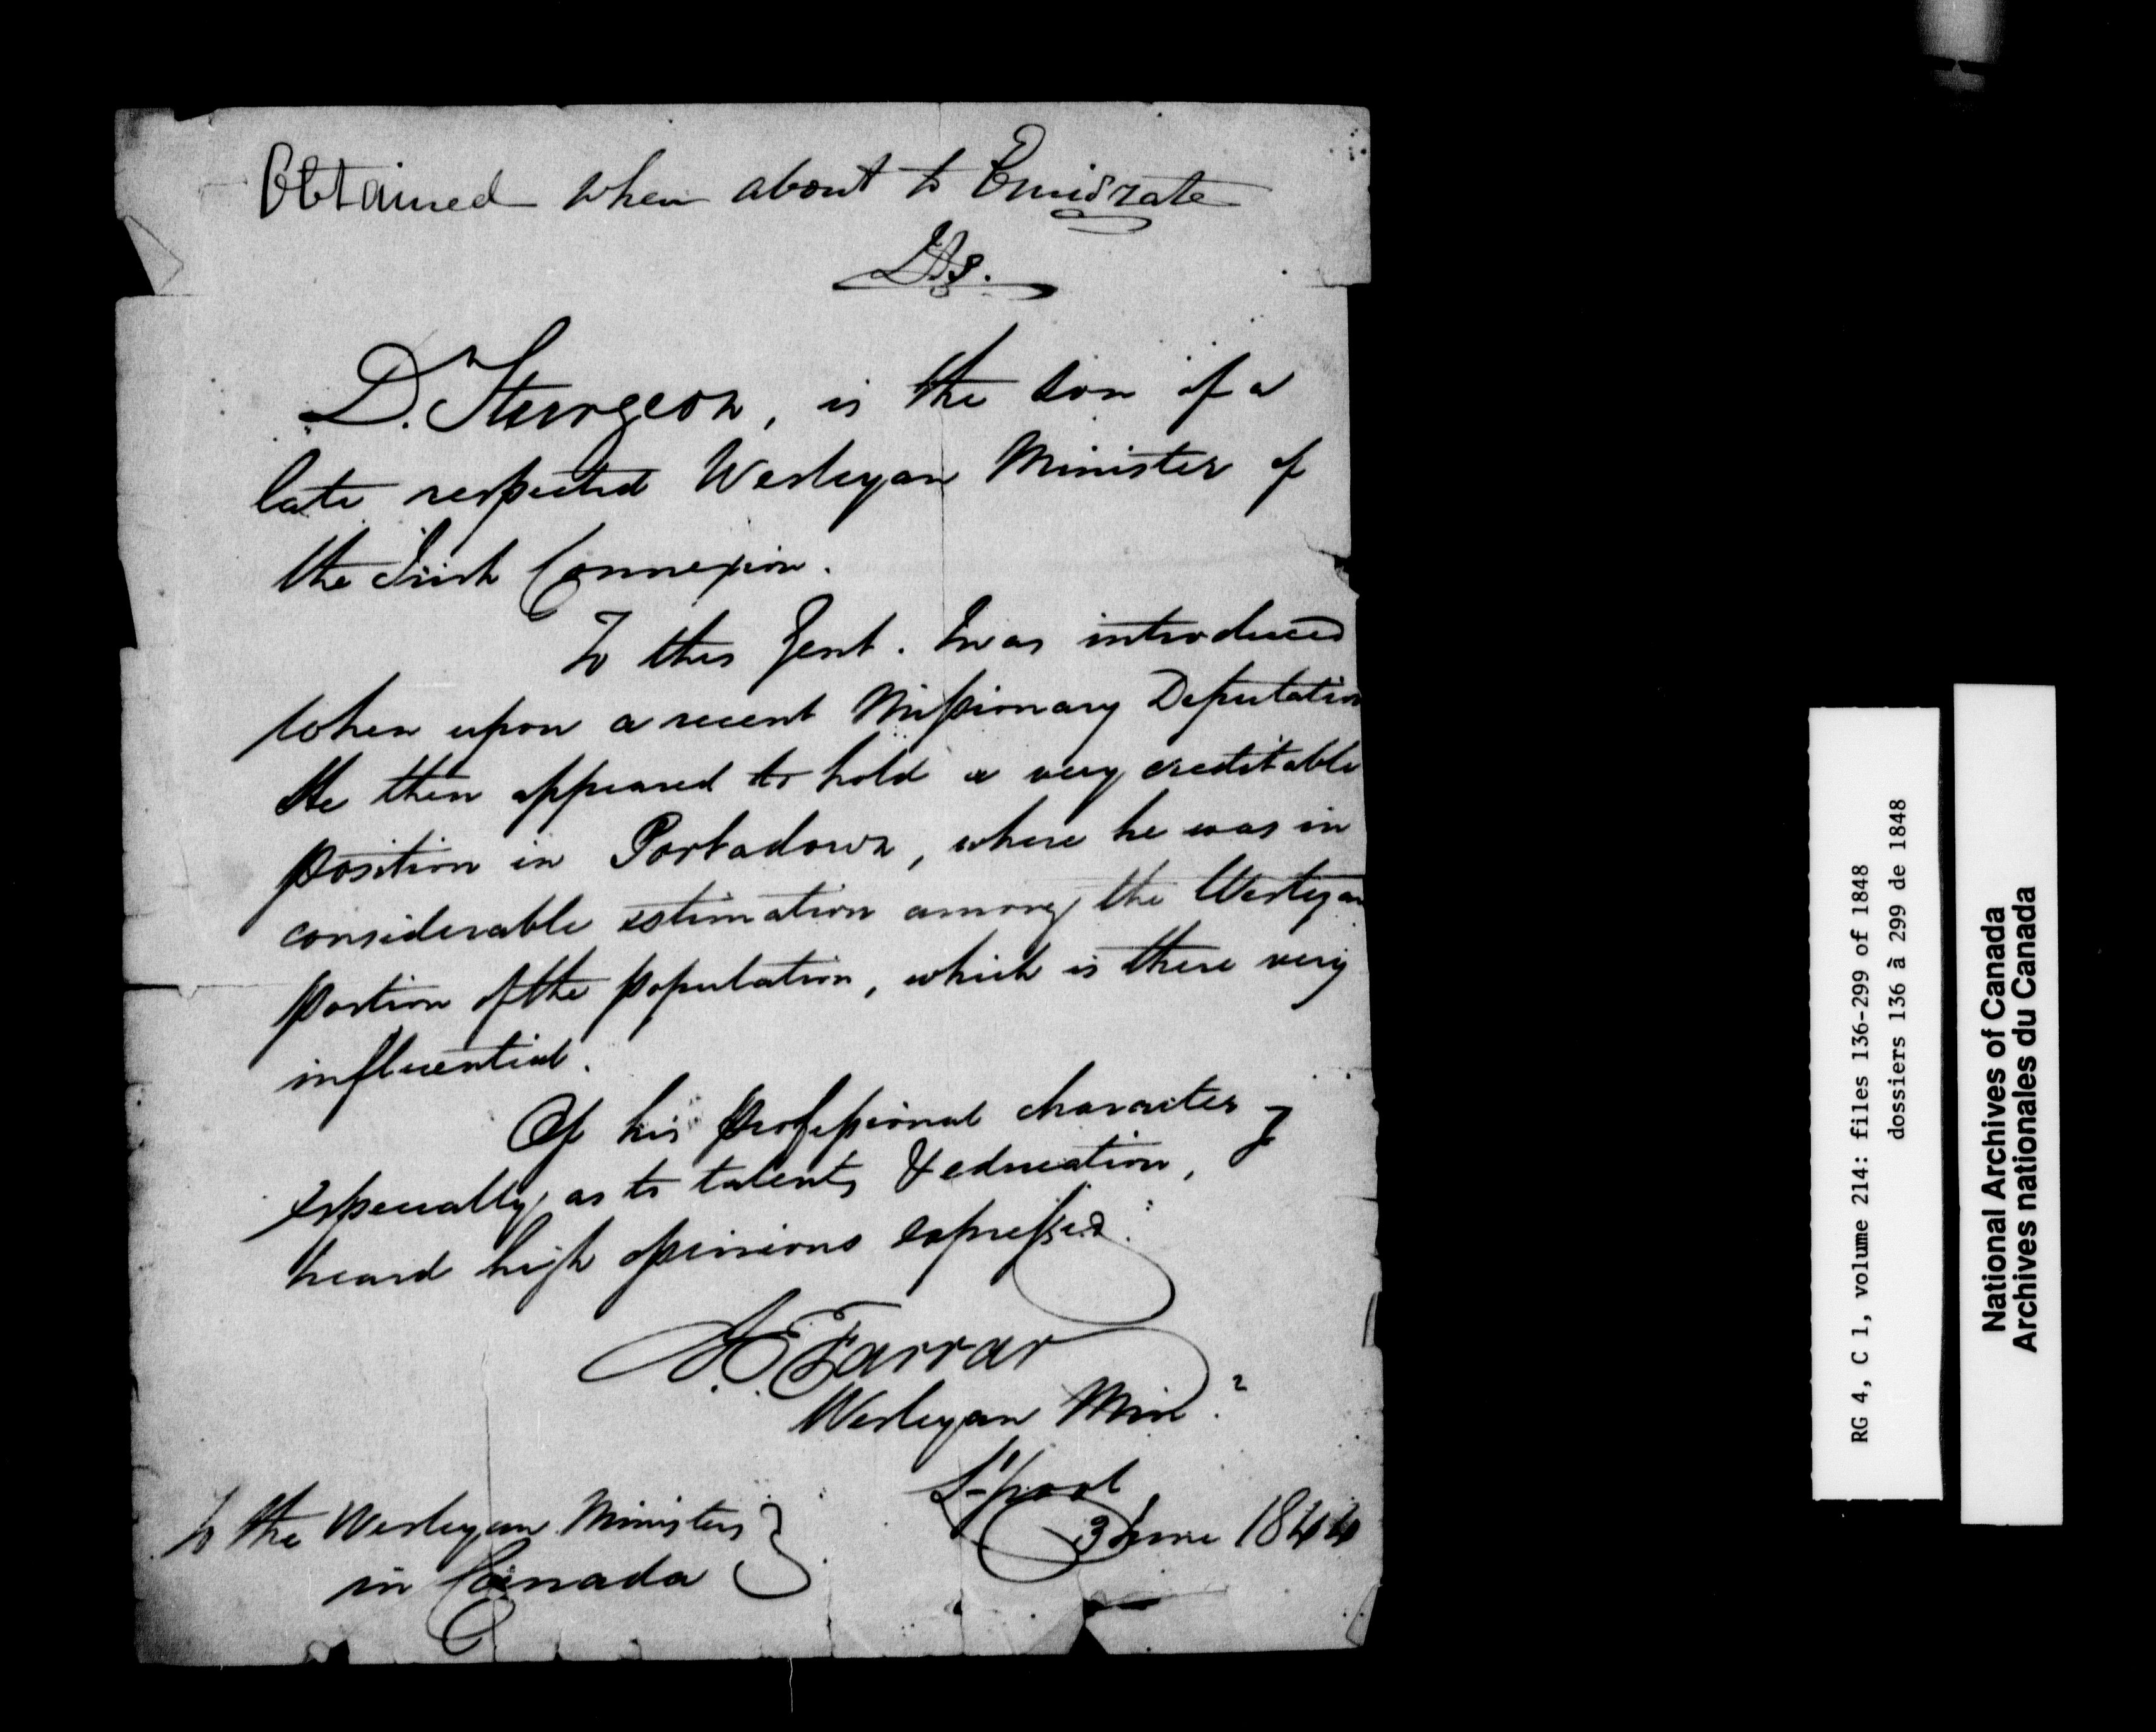 Obtained when about to Emigrate
D. Sturgeon, is the son of a
late respected Wesleyan Minister of
the Irish Connexion.
To this Gent. I was introduced
when upon a recent Missionary Deputation
He then appeared to hold a very creditable
position in Portadown, where he was in
considerable estimation among the Wesleyan
portion of the population, which is there very
influential.
Of his professional character I
especially, as to talents & education,
heard high opinions expressed.
A E Farrar
Wesleyan Minr.
L'pool
3 June 1844
To the Wesleyan Ministers
in Canada
RG 4, C 1, volume 214: files 136-299 of 1848
dossiers 136 à 299 de 1848
National Archives of Canada
Archives nationales du Canada